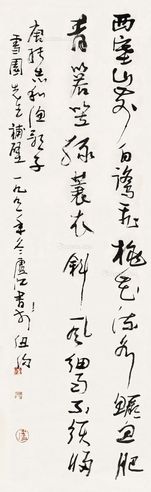 西塞山前白鹭飞桃花流水鳜鱼肥
青箬笠绿蓑衣斜风细雨不须归
唐张志和渔歌子
雪园先生补壁一九九一年冬庐江书